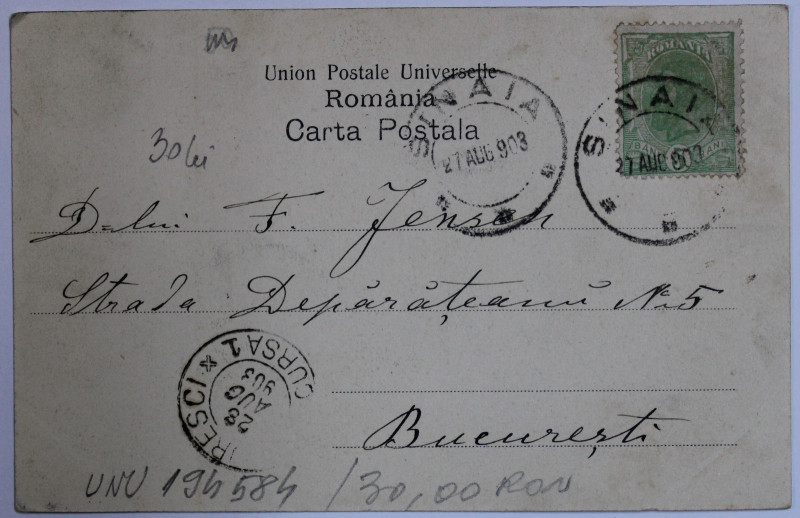 Union Postale Universelle
România
Carta Postala
ROMANIA
BANI BANI
SINAIA
27 AUG 903
SINAIA
27 AUG 903
30 lei
D-lui F. Jensen
Strada Depărățeanu No 5
București
CURSA 1
28
AUG
903
RESCI
UNU 194584 /30,00 RON